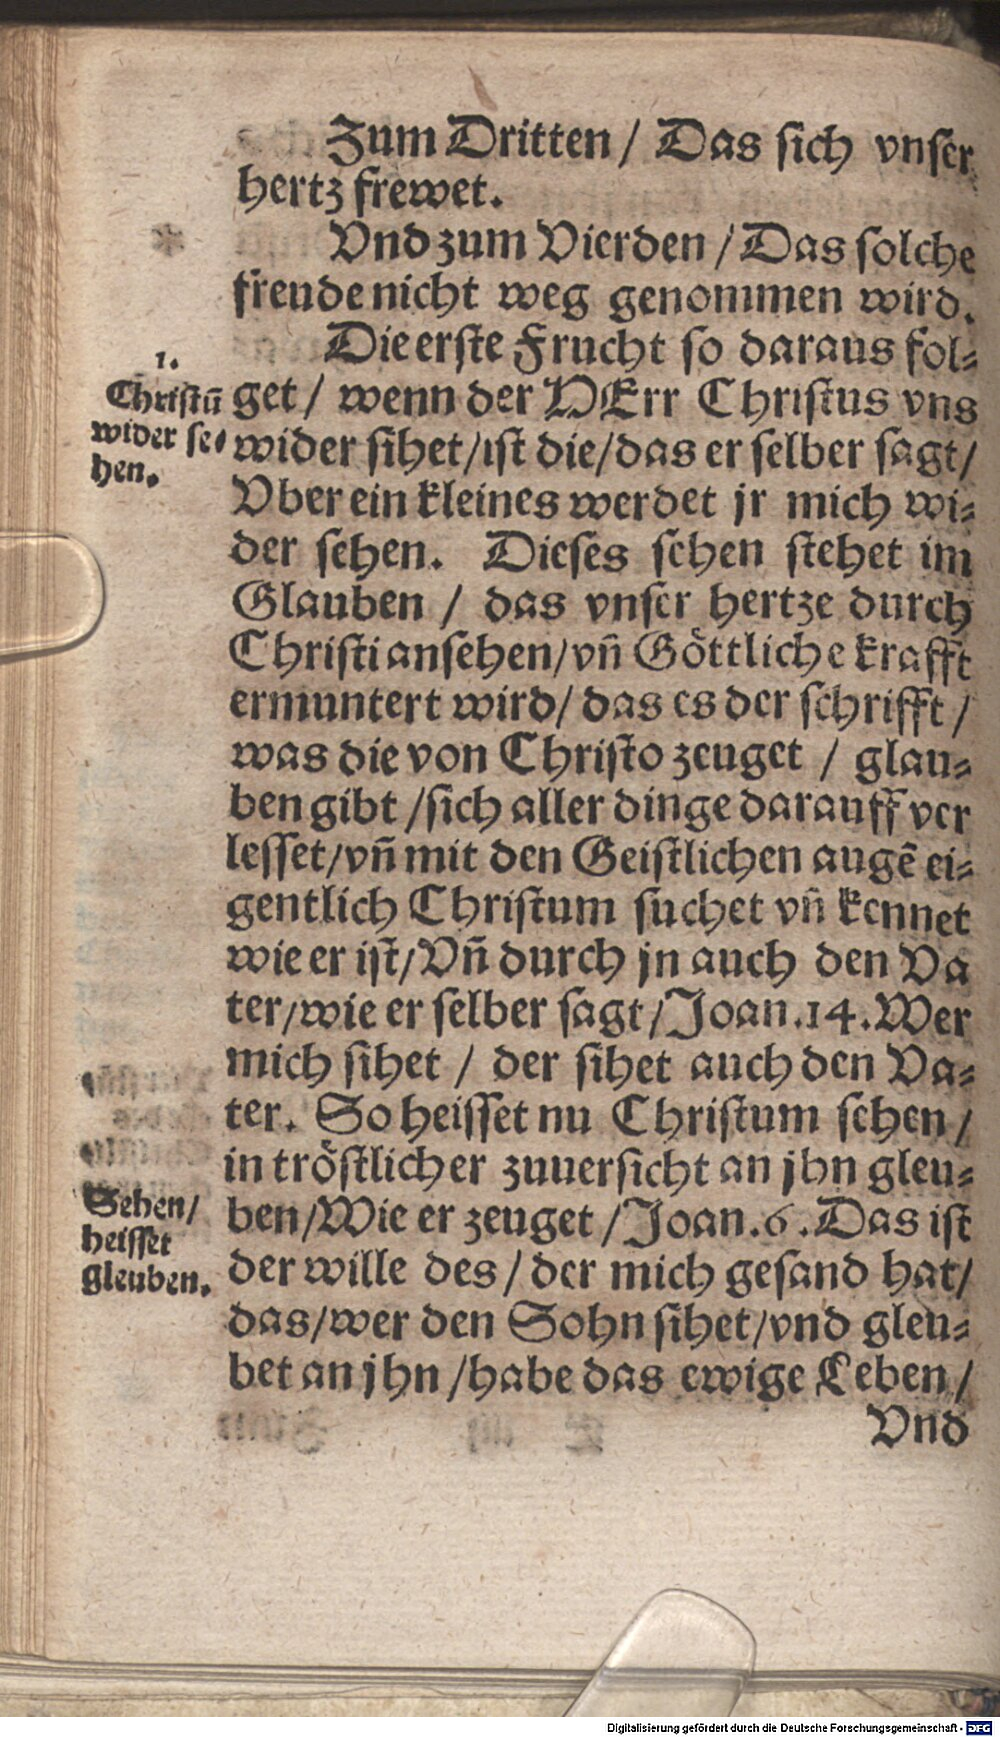 Zum Dritten / Das sich vnser
hertz frewet.
Vnd zum Vierden / Das solche
freude nicht weg genommen wird.
Die erste Frucht so daraus fol-
get / wenn der HErr Christus vns
wider sihet / ist die / das er selber sagt /
Vber ein kleines werdet jr mich wi-
der sehen. Dieses sehen stehet im
Glauben / das vnser hertze durch
Christi ansehen / vñ Göttliche krafft
ermuntert wird / das es der schrifft /
was die von Christo zeuget / glau-
ben gibt / sich aller dinge darauff ver
lesset / vñ mit den Geistlichen augē ei-
gentlich Christum suchet vñ kennet
wie er ist / Vñ durch jn auch den Va
ter / wie er selber sagt / Joan. 14. Wer
mich sihet / der sihet auch den Va-
ter. So heisset nu Christum sehen /
in tröstlicher zuuersicht an jhn gleu-
ben / Wie er zeuget / Joan. 6. Das ist
der wille des / der mich gesand hat /
das / wer den Sohn sihet / vnd gleu-
bet an jhn / habe das ewige Leben /
Vnd
1.
Christū
wider se-
hen.
Sehen /
heisset
gleuben.
Digitalisierung gefördert durch die Deutsche Forschungsgemeinschaft - DFG